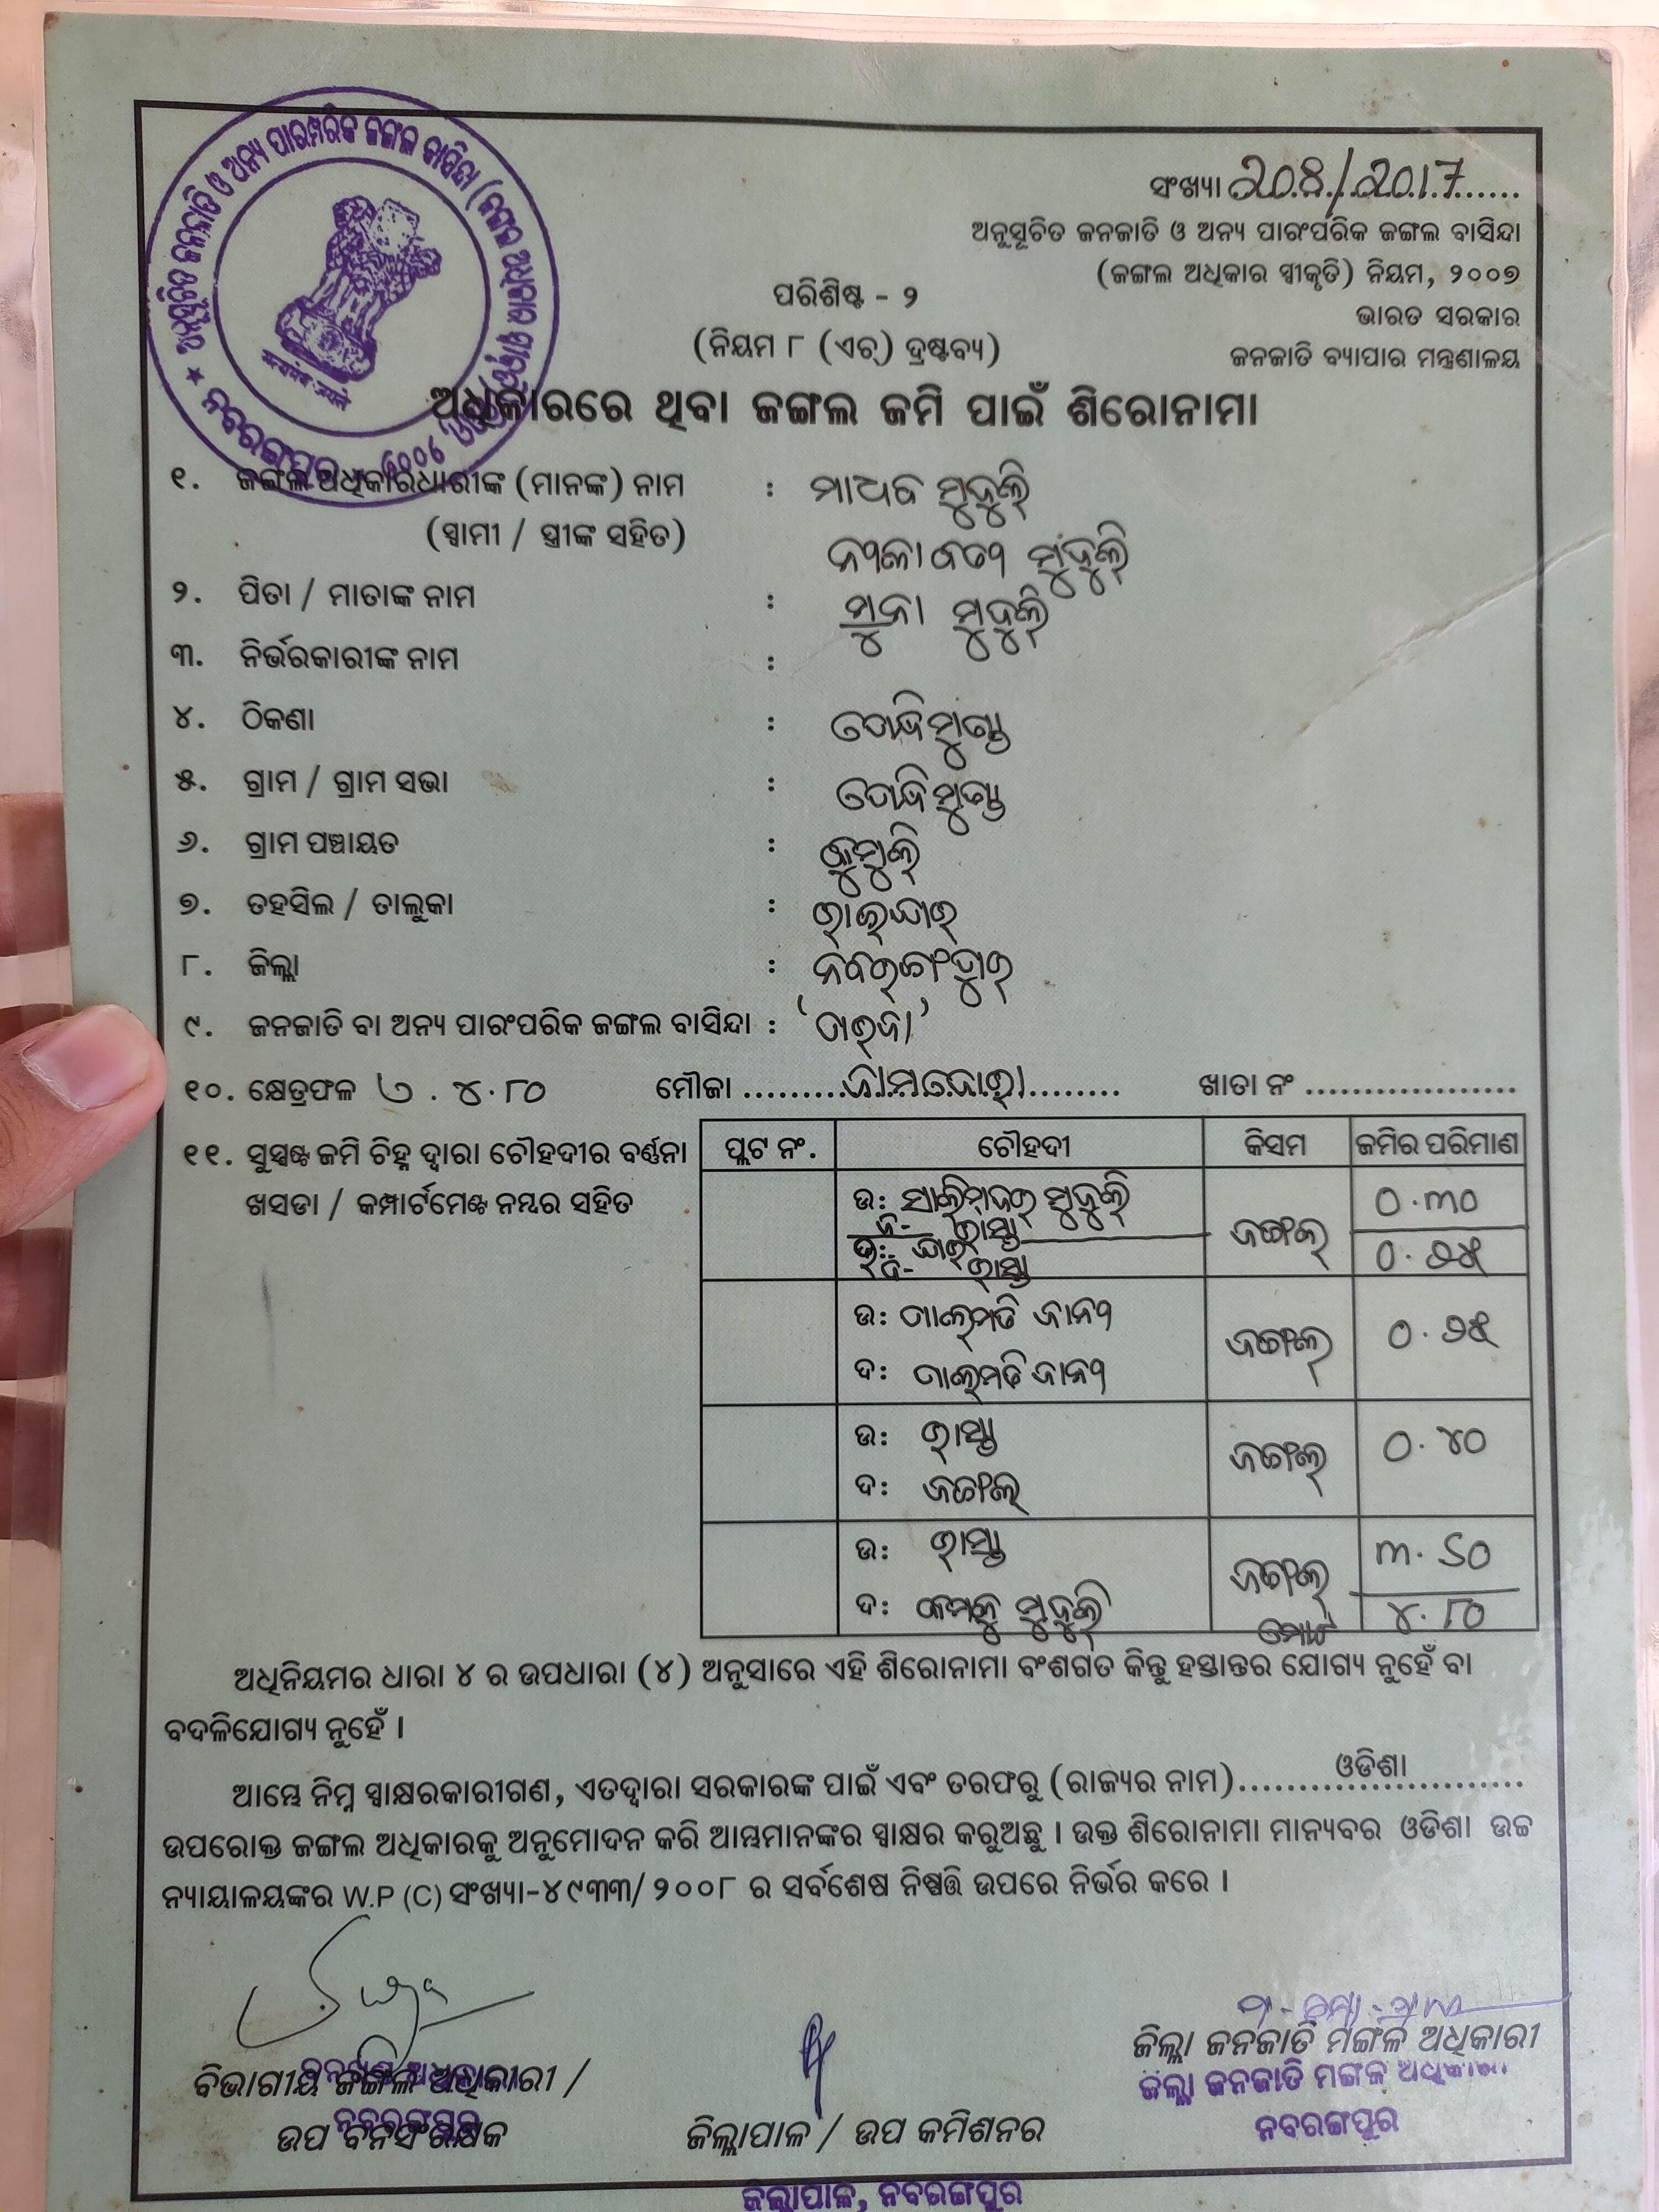 ସଂଖ୍ୟା ୨୦୫/2017
ଅନୁସୂଚିତ ଜନଜାତି ଓ ଅନ୍ୟ ପାରଂପରିକ ଜଙ୍ଗଲ ବାସିନ୍ଦା
(ଜଙ୍ଗଲ ଅଧିକାର ସ୍ୱୀକୃତି) ନିୟମ, ୨୦୦୭
ଭାରତ ସରକାର
ଜନଜାତି ବ୍ୟାପାର ମନ୍ତ୍ରଣାଳୟ
ପରିଶିଷ୍ଟ - ୨
(ନିୟମ ୮ (ଏଚ୍) ଦ୍ରଷ୍ଟବ୍ୟ)
ଅଧିକାରରେ ଥିବା ଜଙ୍ଗଲ ଜମି ପାଇଁ ଶିରୋନାମା
୧. ଜଙ୍ଗଲ ଅଧିକାରଧାରୀଙ୍କ (ମାନଙ୍କ) ନାମ : ମାଧବ ମୁଦୁଲି
(ସ୍ୱାମୀ / ସ୍ତ୍ରୀଙ୍କ ସହିତ) ମୁଦୁଲି
୨. ପିତା / ମାତାଙ୍କ ନାମ : ମୁଦୁଲି
୩. ନିର୍ଭରକାରୀଙ୍କ ନାମ :
୪. ଠିକଣା :
୫. ଗ୍ରାମ / ଗ୍ରାମ ସଭା :
୬. ଗ୍ରାମ ପଞ୍ଚାୟତ : କୁମୁଲି
୭. ତହସିଲ / ତାଲୁକା : ରାଇଘର
୮. ଜିଲ୍ଲା : ନବରଂଗପୁର
୯. ଜନଜାତି ବା ଅନ୍ୟ ପାରଂପରିକ ଜଙ୍ଗଲ ବାସିନ୍ଦା :
୧୦. କ୍ଷେତ୍ରଫଳ ୪.୮୦ ମୌଜା ଖାତା ନଂ
୧୧. ସୁସ୍ପଷ୍ଟ ଜମି ଚିହ୍ନ ଦ୍ୱାରା ଚୌହଦୀର ବର୍ଣ୍ଣନା
ଖସଡା / କମ୍ପାର୍ଟମେଣ୍ଟ ନମ୍ବର ସହିତ
ପ୍ଲଟ ନଂ. ଚୌହଦୀ କିସମ ଜମିର ପରିମାଣ
ଉ: ମୁଦୁଲି ଜଙ୍ଗଲ ୦.୩୦
ଦ- ରାସ୍ତା
ଉ: ଘର ୦.୨୫
ଦ- ରାସ୍ତା
ଉ: ଜଙ୍ଗଲ ୦.୨୫
ଦ:
ଉ: ରାସ୍ତା ଜଙ୍ଗଲ ୦.୪୦
ଦ: ଜଙ୍ଗଲ
ଉ: ରାସ୍ତା ଜଙ୍ଗଲ ୩.୬୦
ଦ: ମୁଦୁଲି ମୋଟ ୪.୮୦
ଅଧିନିୟମର ଧାରା ୪ ର ଉପଧାରା (୪) ଅନୁସାରେ ଏହି ଶିରୋନାମା ବଂଶଗତ କିନ୍ତୁ ହସ୍ତାନ୍ତର ଯୋଗ୍ୟ ନୁହେଁ ବା
ବଦଳିଯୋଗ୍ୟ ନୁହେଁ ।
ଆମ୍ଭେ ନିମ୍ନ ସ୍ୱାକ୍ଷରକାରୀଗଣ, ଏତଦ୍ଦ୍ୱାରା ସରକାରଙ୍କ ପାଇଁ ଏବଂ ତରଫରୁ (ରାଜ୍ୟର ନାମ) ଓଡିଶା
ଉପରୋକ୍ତ ଜଙ୍ଗଲ ଅଧିକାରକୁ ଅନୁମୋଦନ କରି ଆମ୍ଭମାନଙ୍କର ସ୍ୱାକ୍ଷର କରୁଅଛୁ । ଉକ୍ତ ଶିରୋନାମା ମାନ୍ୟବର ଓଡିଶା ଉଚ୍ଚ
ନ୍ୟାୟାଳୟଙ୍କର W.P (C) ସଂଖ୍ୟା-୪୯୩୩/୨୦୦୮ ର ସର୍ବଶେଷ ନିଷ୍ପତ୍ତି ଉପରେ ନିର୍ଭର କରେ ।
ବିଭାଗୀୟ ଜଙ୍ଗଲ ଅଧିକାରୀ /
ଉପ ବନସଂରକ୍ଷକ
ନବରଙ୍ଗପୁର
ଜିଲ୍ଲାପାଳ / ଉପ କମିଶନର
ଜିଲ୍ଲାପାଳ, ନବରଙ୍ଗପୁର
ଜିଲ୍ଲା ଜନଜାତି ମଙ୍ଗଳ ଅଧିକାରୀ
ଜିଲ୍ଲା ଜନଜାତି ମଙ୍ଗଳ ଅଧିକାରୀ
ନବରଙ୍ଗପୁର